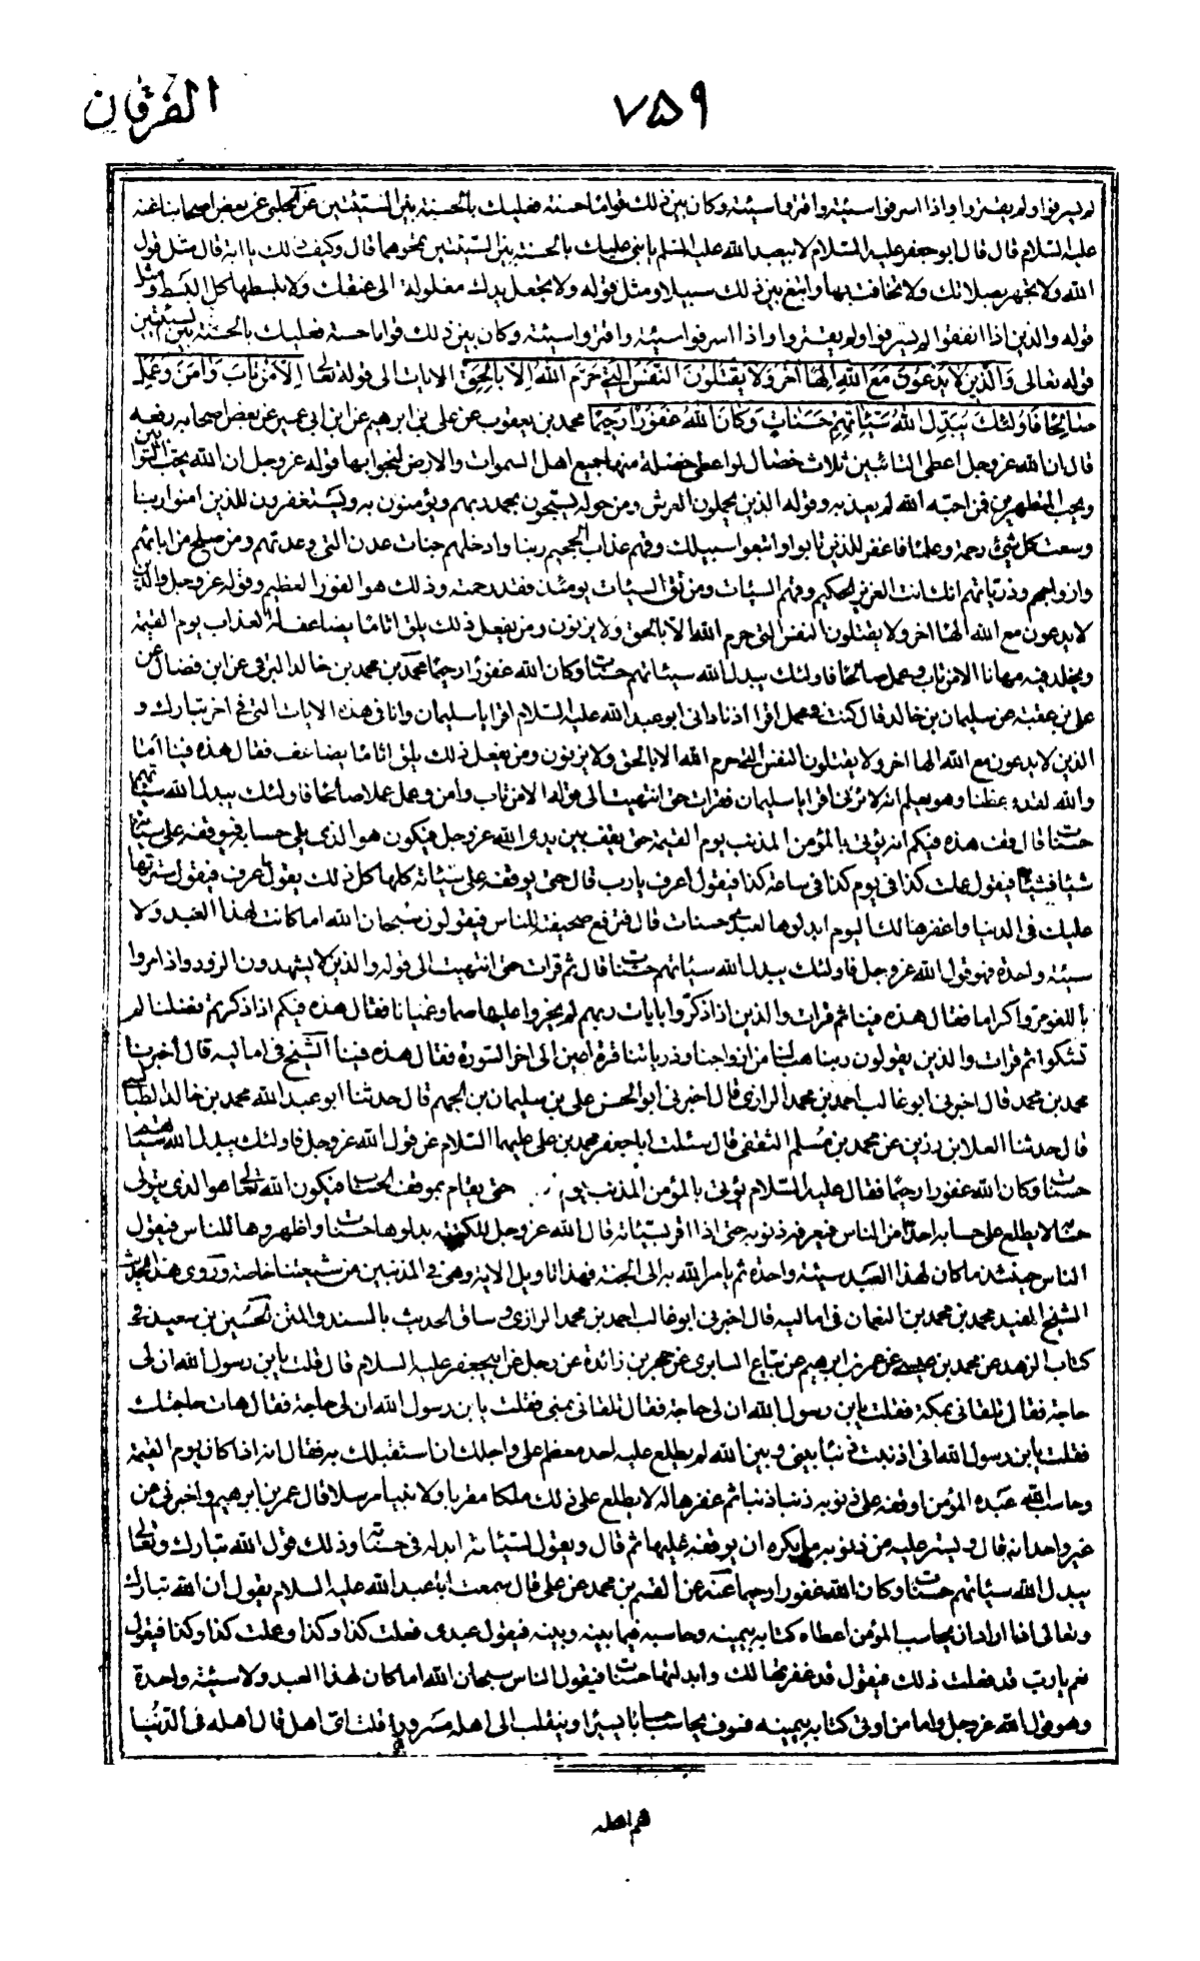 الفرقان
٧٥٩
لم يسرفوا ولم يقتروا واذا اسرفوا سيئة واقتروا سيئة وكان بين ذلك قواما حسنة فعليك بالحسنة بين السيئتين عن الحلبي عن بعض اصحابنا عنه
عليه السلام قال قال ابو جعفر عليه السلام لابي عبد الله عليه السلم يا بني عليك بالحسنة بين السيئتين تمحوهما قال وكيف ذلك يا ابة قال مثل قول
الله ولا تجهر بصلاتك ولا تخافت بها وابتغ بين ذلك سبيلا ومثل قوله ولا تجعل يدك مغلولة الى عنقك ولا تبسطها كل البسط ومثل
قوله والذين اذا انفقوا لم يسرفوا ولم يقتروا واذا اسرفوا سيئة واقتروا سيئة وكان بين ذلك قواما حسنة فعليك بالحسنة بين السيئتين
قوله تعالى والذين لا يدعون مع الله الها اخر ولا يقتلون النفس التي حرم الله الا بالحق الايات الى قوله تعالى الا من تاب وامن وعمل
صالحا فاولئك يبدل الله سيئاتهم حسنات وكان الله غفورا رحيما محمد بن يعقوب عن علي بن ابرهيم عن ابن ابي عمير عن بعض اصحابه رفعه
قال ان الله عز وجل اعطى التائبين ثلاث خصال لو اعطى خصلة منها جميع اهل السموات والارض لنجوا بها قوله عز وجل ان الله يحب التوابين
ويحب المتطهرين فمن احبه الله لم يعذبه وقوله الذين يحملون العرش ومن حوله يسبحون بحمد ربهم ويؤمنون به ويستغفرون للذين امنوا ربنا
وسعت كل شيء رحمة وعلما فاغفر للذين تابوا واتبعوا سبيلك وقهم عذاب الجحيم ربنا وادخلهم جنات عدن التي وعدتهم ومن صلح من ابائهم
وازواجهم وذرياتهم انك انت العزيز الحكيم وقهم السيئات ومن تق السيئات يومئذ فقد رحمته وذلك هو الفوز العظيم وقوله عز وجل والذين
لا يدعون مع الله الها اخر ولا يقتلون النفس التي حرم الله الا بالحق ولا يزنون ومن يفعل ذلك يلق اثاما يضاعف له العذاب يوم القيمة
ويخلد فيه مهانا الا من تاب وعمل صالحا فاولئك يبدل الله سيئاتهم حسنات وكان الله غفورا رحيما محمد بن محمد بن خالد البرقي عن ابن فضال عن
علي بن عقبة عن سليمان بن خالد قال كنت في محمل اقرا اذ ناداني ابو عبد الله عليه السلام اقرا يا سليمان وانا في هذه الايات التي في اخر تبارك و
الذين لا يدعون مع الله الها اخر ولا يقتلون النفس التي حرم الله الا بالحق ولا يزنون ومن يفعل ذلك يلق اثاما يضاعف فقال هذه فينا اما
والله لقد وعظنا وهو يعلم انه لا نزني اقرا يا سليمان فقرات حتى انتهيت الى قوله الا من تاب وامن وعمل عملا صالحا فاولئك يبدل الله سيئاتهم
حسنات قال قف هذه فيكم انه يؤتى بالمؤمن المذنب يوم القيمة حتى يقف بين يدي الله عز وجل فيكون هو الذي يلي حسابه فيوقفه على سيئاته
شيئا فشيئا فيقول عملت كذا في يوم كذا في ساعة كذا فيقول اعرف يا رب قال حتى يوقفه على سيئاته كلها كل ذلك يقول اعرف فيقول سترتها
عليك في الدنيا واغفرها لك اليوم ابدلوها لعبدي حسنات قال فترفع صحيفته للناس فيقولون سبحان الله اما كانت لهذا العبد ولا
سيئة واحدة فهو قول الله عز وجل فاولئك يبدل الله سيئاتهم حسنات قال ثم قرات حتى انتهيت الى قوله والذين لا يشهدون الزور واذا مروا
باللغو مروا كراما فقال هذه فينا ثم قرات والذين اذا ذكروا بايات ربهم لم يخروا عليها صما وعميانا فقال هذه فيكم اذا ذكرتم فضلنا لم
تشكوا ثم قرات والذين يقولون ربنا هب لنا من ازواجنا وذرياتنا قرة اعين الى اخر السورة فقال هذه فينا الشيخ في اماليه قال اخبرنا
محمد بن محمد قال اخبرني ابو غالب احمد بن محمد الرازي قال اخبرني ابو الحسن علي بن سليمان بن الجهم قال حدثنا ابو عبد الله محمد بن خالد الطيالسي
قال حدثنا العلا بن رزين عن محمد بن مسلم الثقفي قال سئلت ابا جعفر محمد بن علي عليهما السلام عن قول الله عز وجل فاولئك يبدل الله سيئاتهم
حسنات وكان الله غفورا رحيما فقال عليه السلام يؤتى بالمؤمن المذنب يوم حتى يقام بموقف الحساب فيكون الله تعالى هو الذي يتولى
حسابه لا يطلع على حسابه احدا من الناس فيعرفه ذنوبه حتى اذا اقر بسيئاته قال الله عز وجل للكتبة بدلوها حسنات واظهروها للناس فيقول
الناس حينئذ ما كان لهذا العبد سيئة واحدة ثم يامر الله به الى الجنة فهذا تاويل الاية وهي في المذنبين من شيعتنا خاصة وروى هذا الحديث
الشيخ المفيد محمد بن محمد بن النعمان في اماليه قال اخبرني ابو غالب احمد بن محمد الرازي وساق الحديث بالسند والمتن الحسين بن سعيد في
كتاب الزهد عن محمد بن عيسى عن عمر بن ابرهيم عن بياع السابري عن حجر بن زائدة عن رجل عن ابي جعفر عليه السلام قال قلت يا بن رسول الله ان لي
حاجة فقال تلقاني بمكة فقلت يا بن رسول الله ان لي حاجة فقال تلقاني بمنى فقلت يا بن رسول الله ان لي حاجة فقال هات حاجتك
فقلت يا بن رسول الله اني اذنبت ذنبا بيني وبين الله لم يطلع عليه احد فعظم علي واجلك ان استقبلك به فقال انه اذا كان يوم القيمة
وحاسب الله عبده المؤمن اوقفه على ذنوبه ذنبا ذنبا ثم غفرها له لا يطلع على ذلك ملكا مقربا ولا نبيا مرسلا قال عمر بن ابرهيم واخبرني عن
غير واحد انه قال ويستر عليه من ذنوبه ما يكره ان يوقفه عليها ثم قال ويقول لسيئاته ابدله في حسناته وذلك قول الله تبارك وتعالى
يبدل الله سيئاتهم حسنات وكان الله غفورا رحيما عنه عن القسم بن محمد عن علي قال سمعت ابا عبد الله عليه السلام يقول ان الله تبارك
وتعالى اذا اراد ان يحاسب المؤمن اعطاه كتابه بيمينه وحاسبه فيما بينه وبينه فيقول عبدي فعلت كذا وكذا وعملت كذا وكذا فيقول
نعم يا رب قد فعلت ذلك فيقول قد غفرتها لك وابدلتها حسنات فيقول الناس سبحان الله اما كان لهذا العبد ولا سيئة واحدة
وهو قول الله عز وجل واما من اوتي كتابه بيمينه فسوف يحاسب حسابا يسيرا وينقلب الى اهله مسرورا قلت اي اهل قال اهله في الدنيا
هم اهله